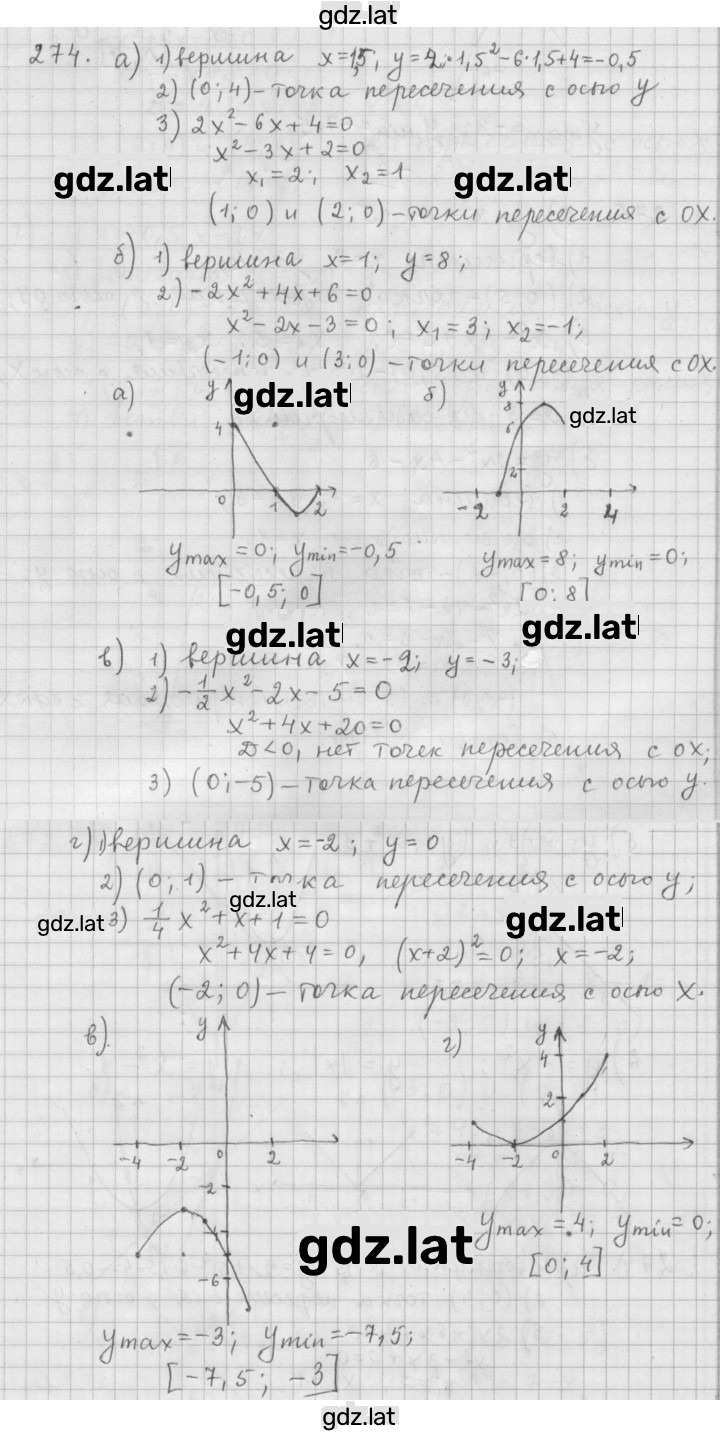 gdz.lat
274. а) 1) вершина x=1,5; y=2·1,5²-6·1,5+4=-0,5
2) (0; 4) - точка пересечения с осью y
3) 2x²-6x+4=0
x²-3x+2=0
gdz.lat
gdz.lat
x₁=2; x₂=1
(1; 0) и (2; 0) - точки пересечения с OX.
б) 1) вершина x=1; y=8;
2) -2x²+4x+6=0
x²-2x-3=0; x₁=3; x₂=-1;
(-1; 0) и (3; 0) - точки пересечения с OX.
а) y gdz.lat б) y
8
gdz.lat
4
6
2
0 1 2
-2 2 4
y max = 0; y min = -0,5
y max = 8; y min = 0;
[-0,5; 0]
[0; 8]
gdz.lat
gdz.lat
в) 1) вершина x=-2; y=-3;
2) -1/2 x²-2x-5=0
x²+4x+20=0
D<0, нет точек пересечения с OX;
3) (0; -5) - точка пересечения с осью y.
г) 1) вершина x=-2; y=0
2) (0; 1) - точка пересечения с осью y;
gdz.lat
gdz.lat
3) 1/4 x²+x+1=0
gdz.lat
x²+4x+4=0, (x+2)²=0; x=-2;
(-2; 0) - точка пересечения с осью X.
в) y
г) y
4
2
-4 -2 0 2
-4 -2 0 2
-2
-4
-6
gdz.lat
y max = 4; y min = 0;
[0; 4]
y max = -3; y min = -7,5;
[-7,5; -3]
gdz.lat